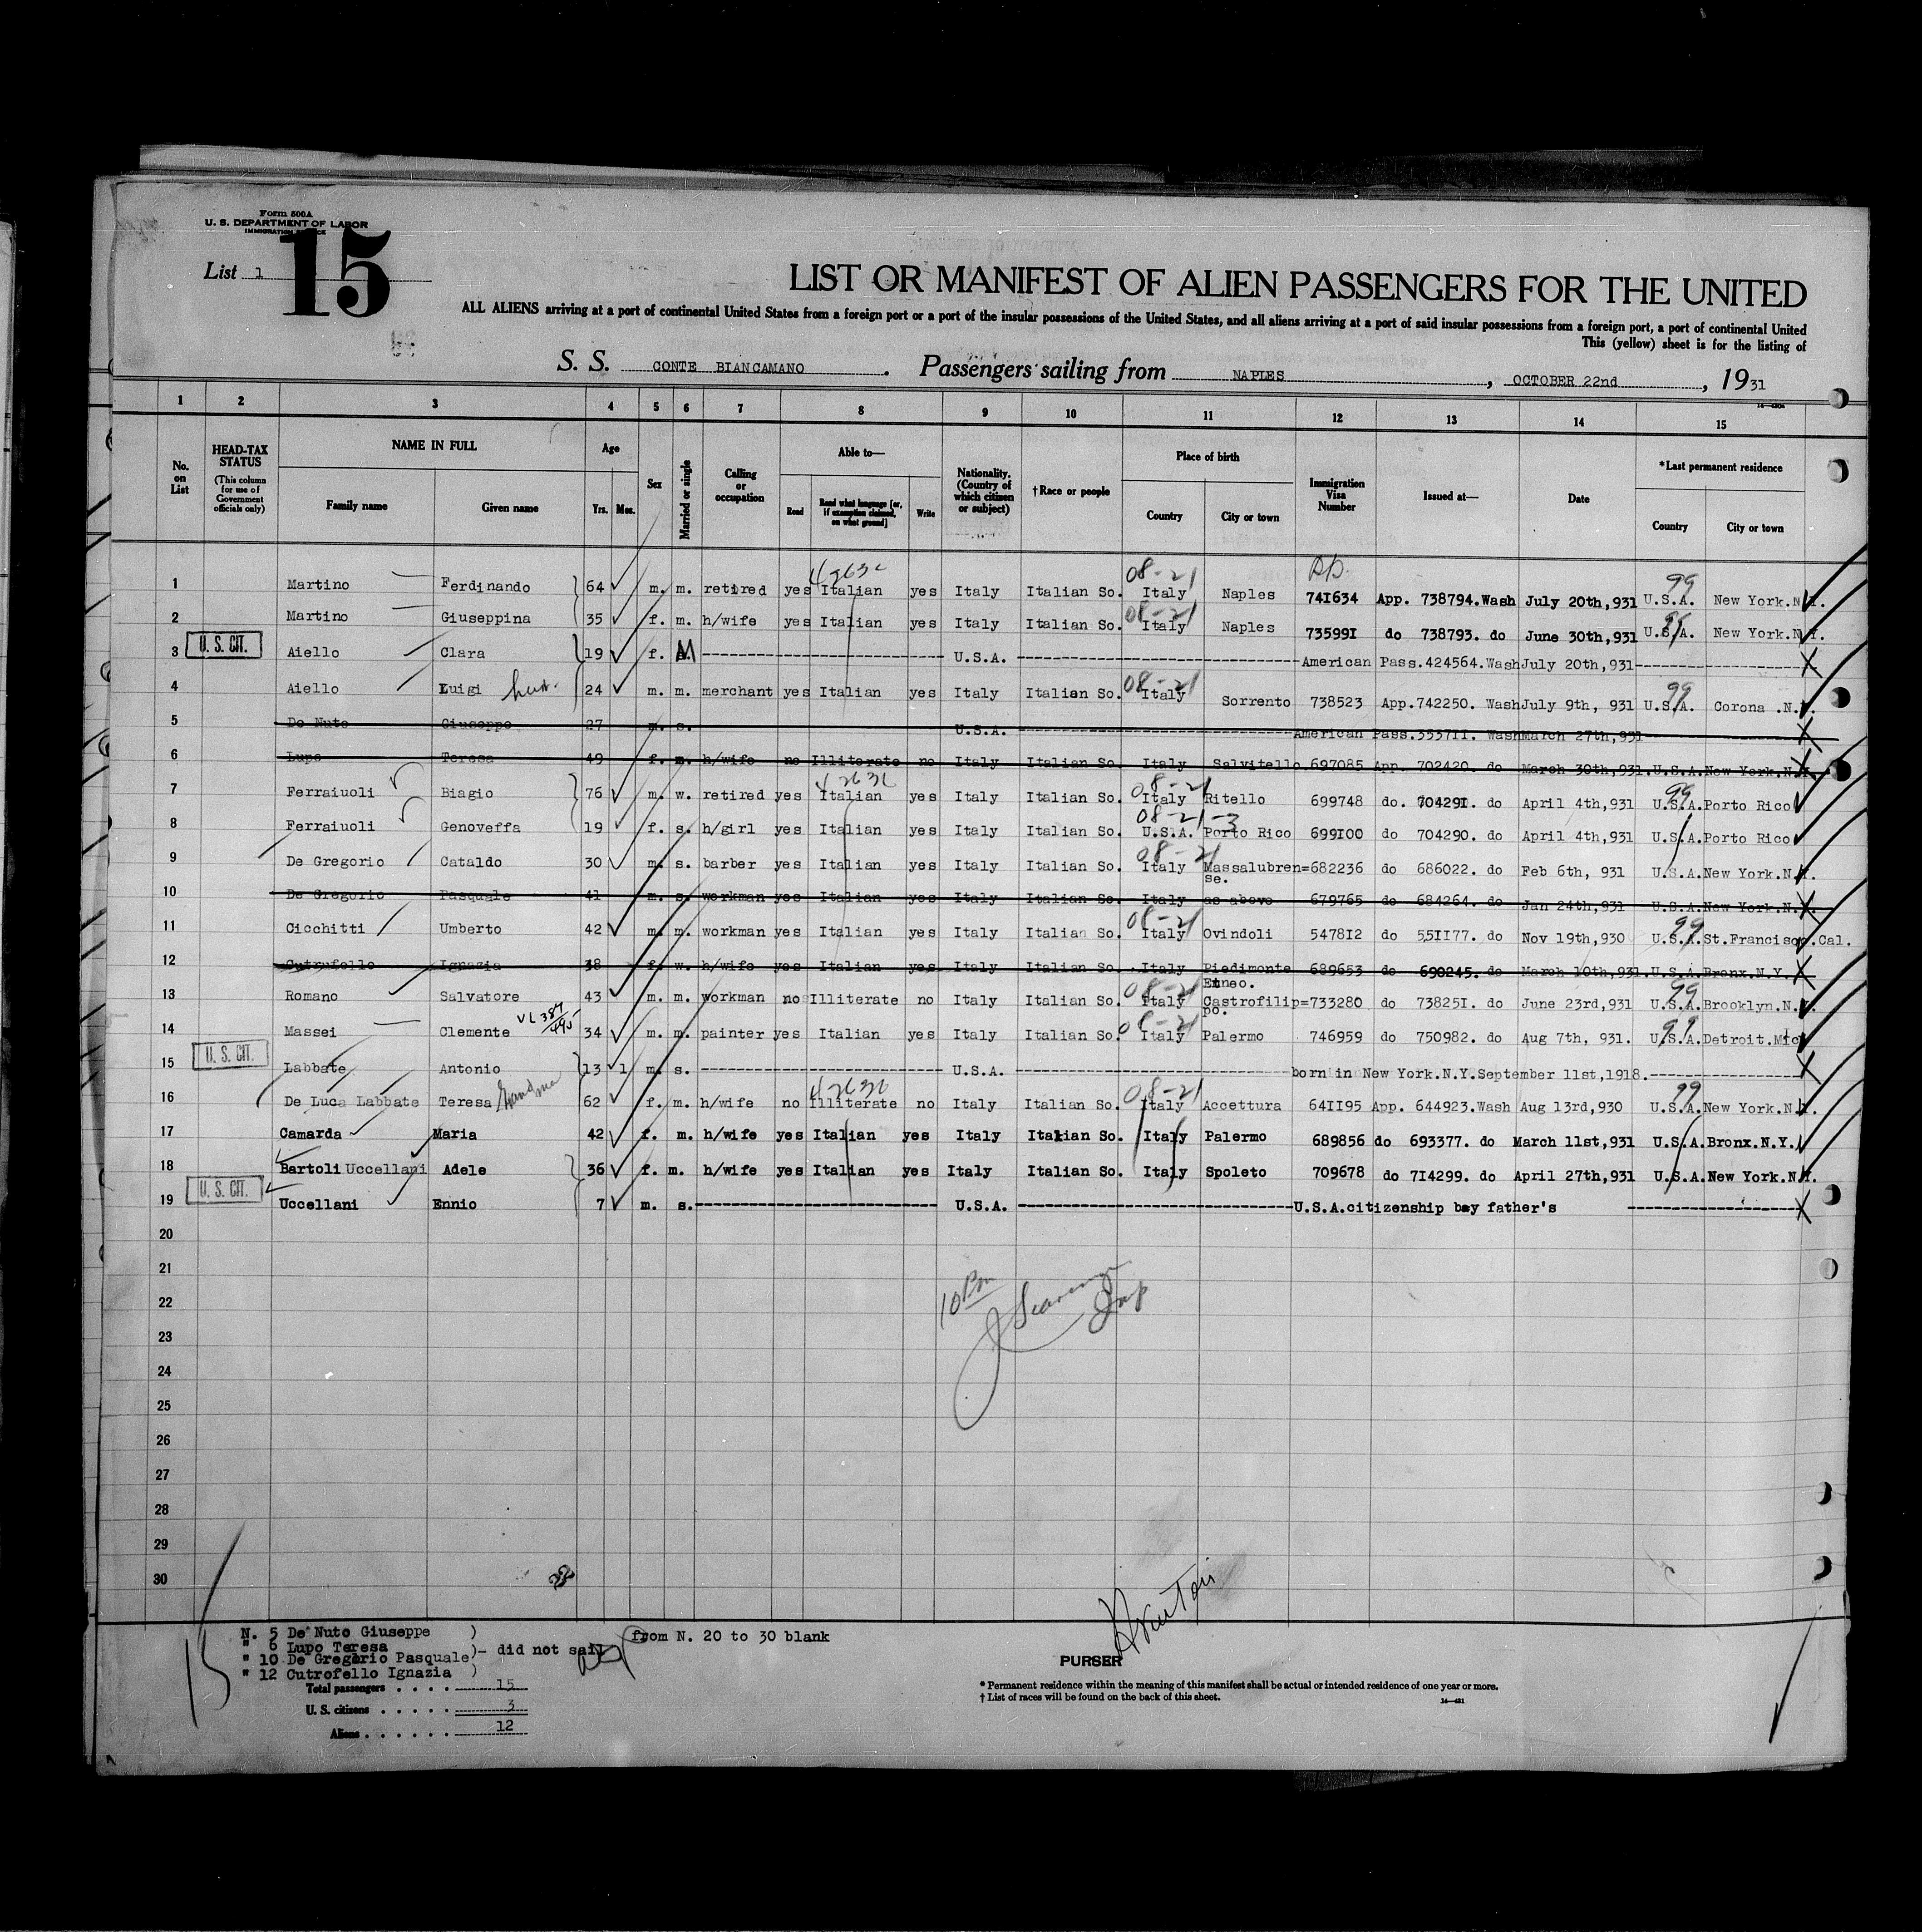 Form 500A
U. S. DEPARTMENT OF LABOR
IMMIGRATION SERVICE
List 1
15
LIST OR MANIFEST OF ALIEN PASSENGERS FOR THE UNITED
ALL ALIENS arriving at a port of continental United States from a foreign port or a port of the insular possessions of the United States, and all aliens arriving at a port of said insular possessions from a foreign port, a port of continental United
This (yellow) sheet is for the listing of
S. S. CONTE BIANCAMANO . Passengers sailing from NAPLES , OCTOBER 22nd , 1931
1 2 3 4 5 6 7 8 9 10 11 12 13 14 15
No. on List
HEAD-TAX STATUS (This column for use of Government officials only)
NAME IN FULL Family name Given name
Age Yrs. Mos.
Sex
Married or single
Calling or occupation
Able to— Read Read what language [or, if exemption claimed, on what ground] Write
Nationality. (Country of which citizen or subject)
†Race or people
Place of birth Country City or town
Immigration Visa Number
Issued at—
Date
*Last permanent residence Country City or town
1 Martino Ferdinando 64 m. m. retired yes Italian 42632 yes Italy Italian So. 08-21 Italy Naples 741634 App. 738794.Wash July 20th,931 99 U.S.A. New York.N.Y.
2 Martino Giuseppina 35 f. m. h/wife yes Italian yes Italy Italian So. 08-21 Italy Naples 735991 do 738793. do June 30th,931 U.S.A. New York.N.Y.
U. S. CIT.
3 Aiello Clara 19 f. M U.S.A. American Pass.424564.Wash July 20th,931 X
4 Aiello Luigi hus. 24 m. m. merchant yes Italian yes Italy Italian So. 08-21 Italy Sorrento 738523 App.742250. Wash July 9th, 931 99 U.S.A. Corona .N.Y.
5 De Nuto Giuseppe 27 m. s. U.S.A. American Pass.353711. Wash March 27th,931 X
6 Lupo Teresa 49 f. m. h/wife no Illiterate no Italy Italian So. Italy Salvitello 697085 App 702420. do March 30th,931.U.S.A.New York.N.Y.
7 Ferraiuoli Biagio 76 m. w. retired yes Italian 42632 yes Italy Italian So. 08-21 Italy Ritello 699748 do. 704291. do April 4th,931 99 U.S.A.Porto Rico
8 Ferraiuoli Genoveffa 19 f. s. h/girl yes Italian yes Italy Italian So. 08-21-3 U.S.A. Porto Rico 699100 do 704290. do April 4th,931 U.S.A.Porto Rico
9 De Gregorio Cataldo 30 m. s. barber yes Italian yes Italy Italian So. 08-21 Italy Massalubren=se. 682236 do 686022. do Feb 6th, 931 U.S.A.New York.N.Y.
10 De Gregorio Pasquale 41 m. s. workman yes Italian yes Italy Italian So. Italy as above 679765 do 684264. do Jan 24th,931 U.S.A.New York.N.Y.
11 Cicchitti Umberto 42 m. m. workman yes Italian yes Italy Italian So. 08-21 Italy Ovindoli 547812 do 551177. do Nov 19th,930 99 U.S.A.St.Francisco.Cal.
12 Cutrofello Ignazia 38 f. w. h/wife yes Italian yes Italy Italian So. Italy Piedimonte Etneo. 689653 do 690245. do March 10th,931.U.S.A.Bronx.N.Y. X
13 Romano Salvatore 43 m. m. workman no Illiterate no Italy Italian So. 08-21 Italy Castrofilip=po. 733280 do 738251. do June 23rd,931 99 U.S.A.Brooklyn.N.Y.
14 Massei Clemente VL 387/495 34 m. m. painter yes Italian yes Italy Italian So. 08-21 Italy Palermo 746959 do 750982. do Aug 7th, 931. 99 U.S.A.Detroit.Mic
U. S. CIT.
15 Labbate Antonio 13 1 m. s. U.S.A. born in New York.N.Y.September 11st,1918. X
16 De Luca Labbate Teresa Grandma 62 f. m. h/wife no Illiterate 42632 no Italy Italian So. 08-21 Italy Accettura 641195 App. 644923.Wash Aug 13rd,930 99 U.S.A.New York.N.Y.
17 Camarda Maria 42 f. m. h/wife yes Italian yes Italy Italian So. Italy Palermo 689856 do 693377. do March 11st,931 U.S.A.Bronx.N.Y.
18 Bartoli Uccellani Adele 36 f. m. h/wife yes Italian yes Italy Italian So. Italy Spoleto 709678 do 714299. do April 27th,931 U.S.A.New York.N.Y.
U. S. CIT.
19 Uccellani Ennio 7 m. s. U.S.A. U.S.A.citizenship bay father's X
20
21
22
23
24
25
26
27
28
29
30
10 Pm
Insp
N. 5 De Nuto Giuseppe )
" 6 Lupo Teresa
" 10 De Gregorio Pasquale )- did not sail from N. 20 to 30 blank
" 12 Cutrofello Ignazia )
Total passengers . . . . 15
U. S. citizens . . . . . 3
Aliens . . . . . . 12
15
PURSER
* Permanent residence within the meaning of this manifest shall be actual or intended residence of one year or more.
† List of races will be found on the back of this sheet.